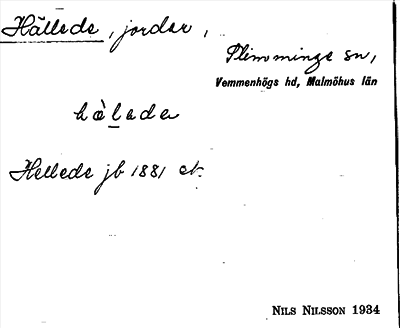 Hällede, jordar,
Slimminge sn,
Vemmenhögs hd, Malmöhus län
hà̀leda
Hellede jb 1881 et.
NILS NILSSON 1934